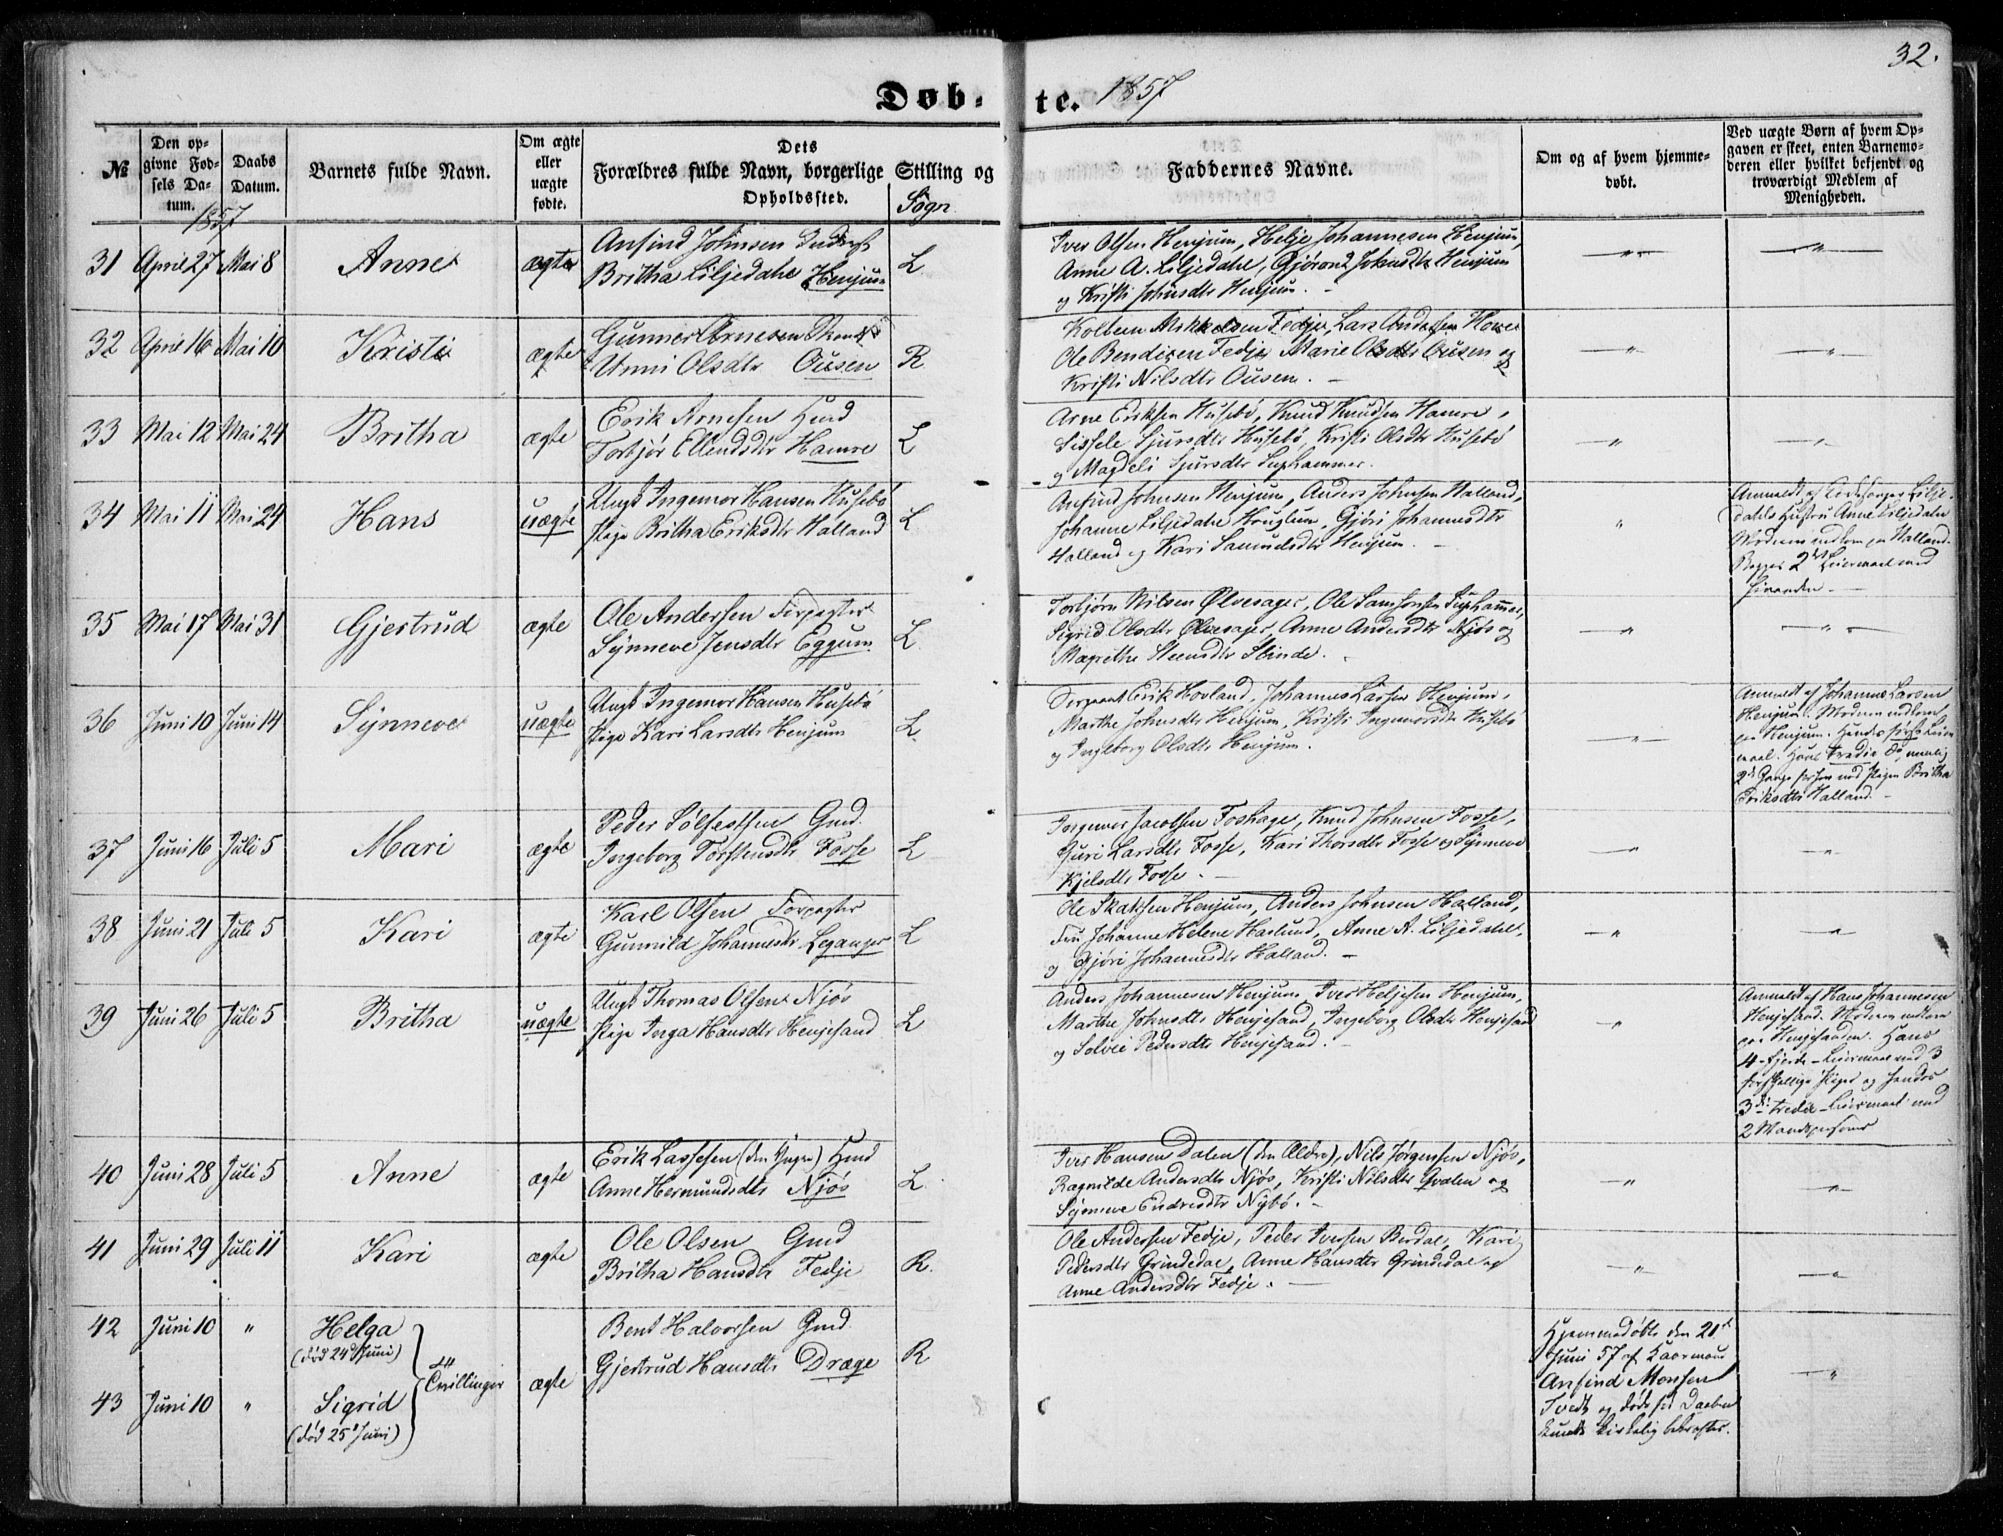 32.
Døb- te. 1857
№
Den opgivne Fødsels Datum.
Daabs Datum.
Barnets fulde Navn.
Om ægte eller uægte fødte.
Dets Forældres fulde Navn, borgerlige Stilling og Opholdssted.
Sogn
Faddernes Navne.
Om og af hvem hjemmedøbt.
Ved uægte Børn af hvem Opgaven er skeet, enten Barnemoderen eller hvilket bekjendt og troværdigt Medlem af Menigheden.
1857
31 April 27 Mai 8 Anne ægte
Anfind Johnsen
Britha Liljedahl Henjum L
Iver Olsen Henjum, Helje Johannesen Henjum,
Anne A. Liljedahl, Gjørond Johnsdtr Henjum
og Kristi Johnsdtr Henjum. -
32 April 16 Mai 10 Kristi ægte
Gunner Arnesen
Unni Olsdtr Ousen R
Kolbein Mikkelsen Fedje, Lars Andersen
Ole Bendixen Fedje Marie Olsdtr Ousen og
Kristi Nilsdtr Ousen. -
33 Mai 12 Mai 24 Britha ægte
Erik Arnesen Huud
Torbjør Ellendsdtr Hamre L
Arne Eriksen Husebø, Knud Knudsen Hamre,
Sissele Sjursdtr Husebø, Kristi Olsdtr Husebø
og Magdeli Sjursdtr Suphammer.
34 Mai 11 Mai 24 Hans uægte
Ungk Ingemor Hansen Husebø
Pige Britha Eriksdtr Halland L
Anfind Johnsen Henjum, Anders Johnsen Halland,
Johanne Liljedahl Houglum, Gjøri Johannesdtr
Halland og Kari Samuelsdtr Henjum. -
Anmeldt af Liljedahls Hustru Anne Liljedahl
Moderen indkom paa Halland.
Begges 2det Leiermaal med
hinanden. -
35 Mai 17 Mai 31 Gjertrud ægte
Ole Andersen Forpagter
Synneve Jensdtr Eggum L.
Torbjørn Nilsen Ølvesager, Ole Samsonsen Suphammer,
Sigrid Olsdtr Ølvesager, Anne Andersdtr Njøs og
Magrethe Steensdtr Slinde.
36 Juni 10 Juni 14 Synneve uægte
Ungk Ingemor Hansen Husebø
Pige Kari Larsdtr Henjum L.
Sergeant Erik Hovland, Johannes Larsen Henjum,
Marthe Johnsdtr Henjum, Kristi Ingemorsdtr Husebø
og Ingeborg Olsdtr Henjum.
Anmeldt af Johannes Larsen
Henjum. Moderen indkom
paa Henjum. Hendes første Leiermaal. Hans tredie Do, nemlig
2de Gange forhen med Pigen Britha
Eriksdtr Halland. -
37 Juni 16 Juli 5 Mari ægte
Peder Sølfestsen Gmd.
Ingeborg Torstensdtr Fosse L
Ingemor Jacobsen Foshage, Knud Johnsen Fosse,
Guri Larsdtr Fosse, Kari Thorsdtr Fosse og Synneve
Kjelsdtr Fosse. -
38 Juni 21 Juli 5 Kari ægte
Karl Olsen Forpagter
Gunnild Johannesdtr Leganger L
Ole Skaksen Henjum, Anders Johnsen Halland,
Fru Johanne Helene Haslund, Anne A. Liljedahl,
og Gjøri Johannesdtr Halland. -
39 Juni 26 Juli 5 Britha uægte
Ungk Thomas Olsen Njøs
Pige Inga Hansdtr Henjesand L
Anders Johannesen Henjum, Iver Heljesen Henjum,
Marthe Johnsdtr Henjesand, Ingeborg Olsdtr Henjesand
og Solvei Pedersdtr Henjesand. -
Anmeldt af Hans Johannesen
Henjesand. Moderen indkom
paa Henjesanden. Hans
4-fjerde-Leiermaal med 3
forskjellige Piger og hendes
3die tredie-Leiermaal med
2 Mandspersoner
40 Juni 28 Juli 5 Anne ægte
Erik Lassesen (den Yngre) Huud
Anne Hermundsdtr Njøs L
Iver Hansen Dalen (den Ældre), Nils Jørgensen Njøs,
Ragnilde Andersdtr Njøs, Kristi Nilsdtr Qvalen og
Synneve Endresdtr Nybø. -
41 Juni 29 Juli 11 Kari ægte
Ole Olsen Gmd
Britha Hansdtr Fedje R.
Ole Andersen Fedje, Peder Iversen Berdal, Kari
Pedersdtr Grindedal, Anne Hansdtr Grindedal og
Anne Andersdtr Fedje. -
42 Juni 10 " Helga
(død 24de Juni)
Tvillinger ægte
Bent Halvorsen Gmd.
Gjertrud Hansdtr Drage R
43 Juni 10 " Sigrid
(død 25 Juni)
Hjemmedøbte den 21de
Juni 57 af
Anfind Monsen
Tvedt og døde før Daaben
kunde kirkelig bekræftes.